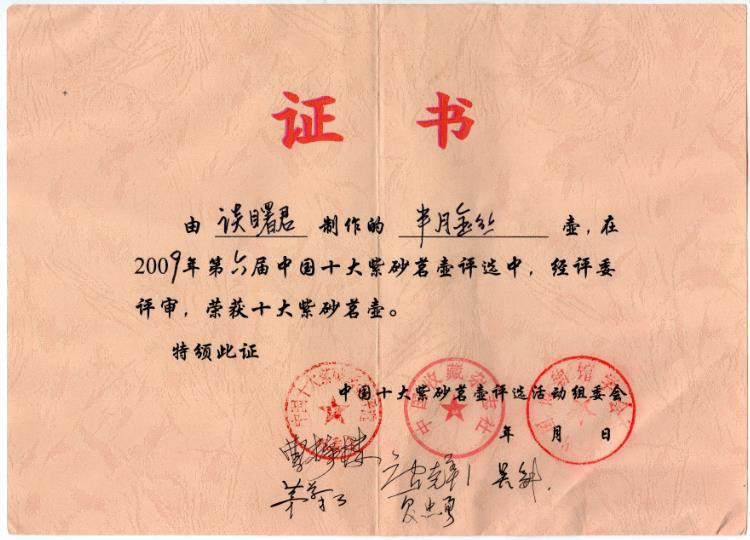 证 书
由 谈曙君 制作的 半月金丝 壶，在
2009年第六届中国十大紫砂茗壶评选中，经评委
评审，荣获十大紫砂茗壶。
特颁此证
中国十大紫砂茗壶评选活动组委会
年 月 日
中国收藏杂志社